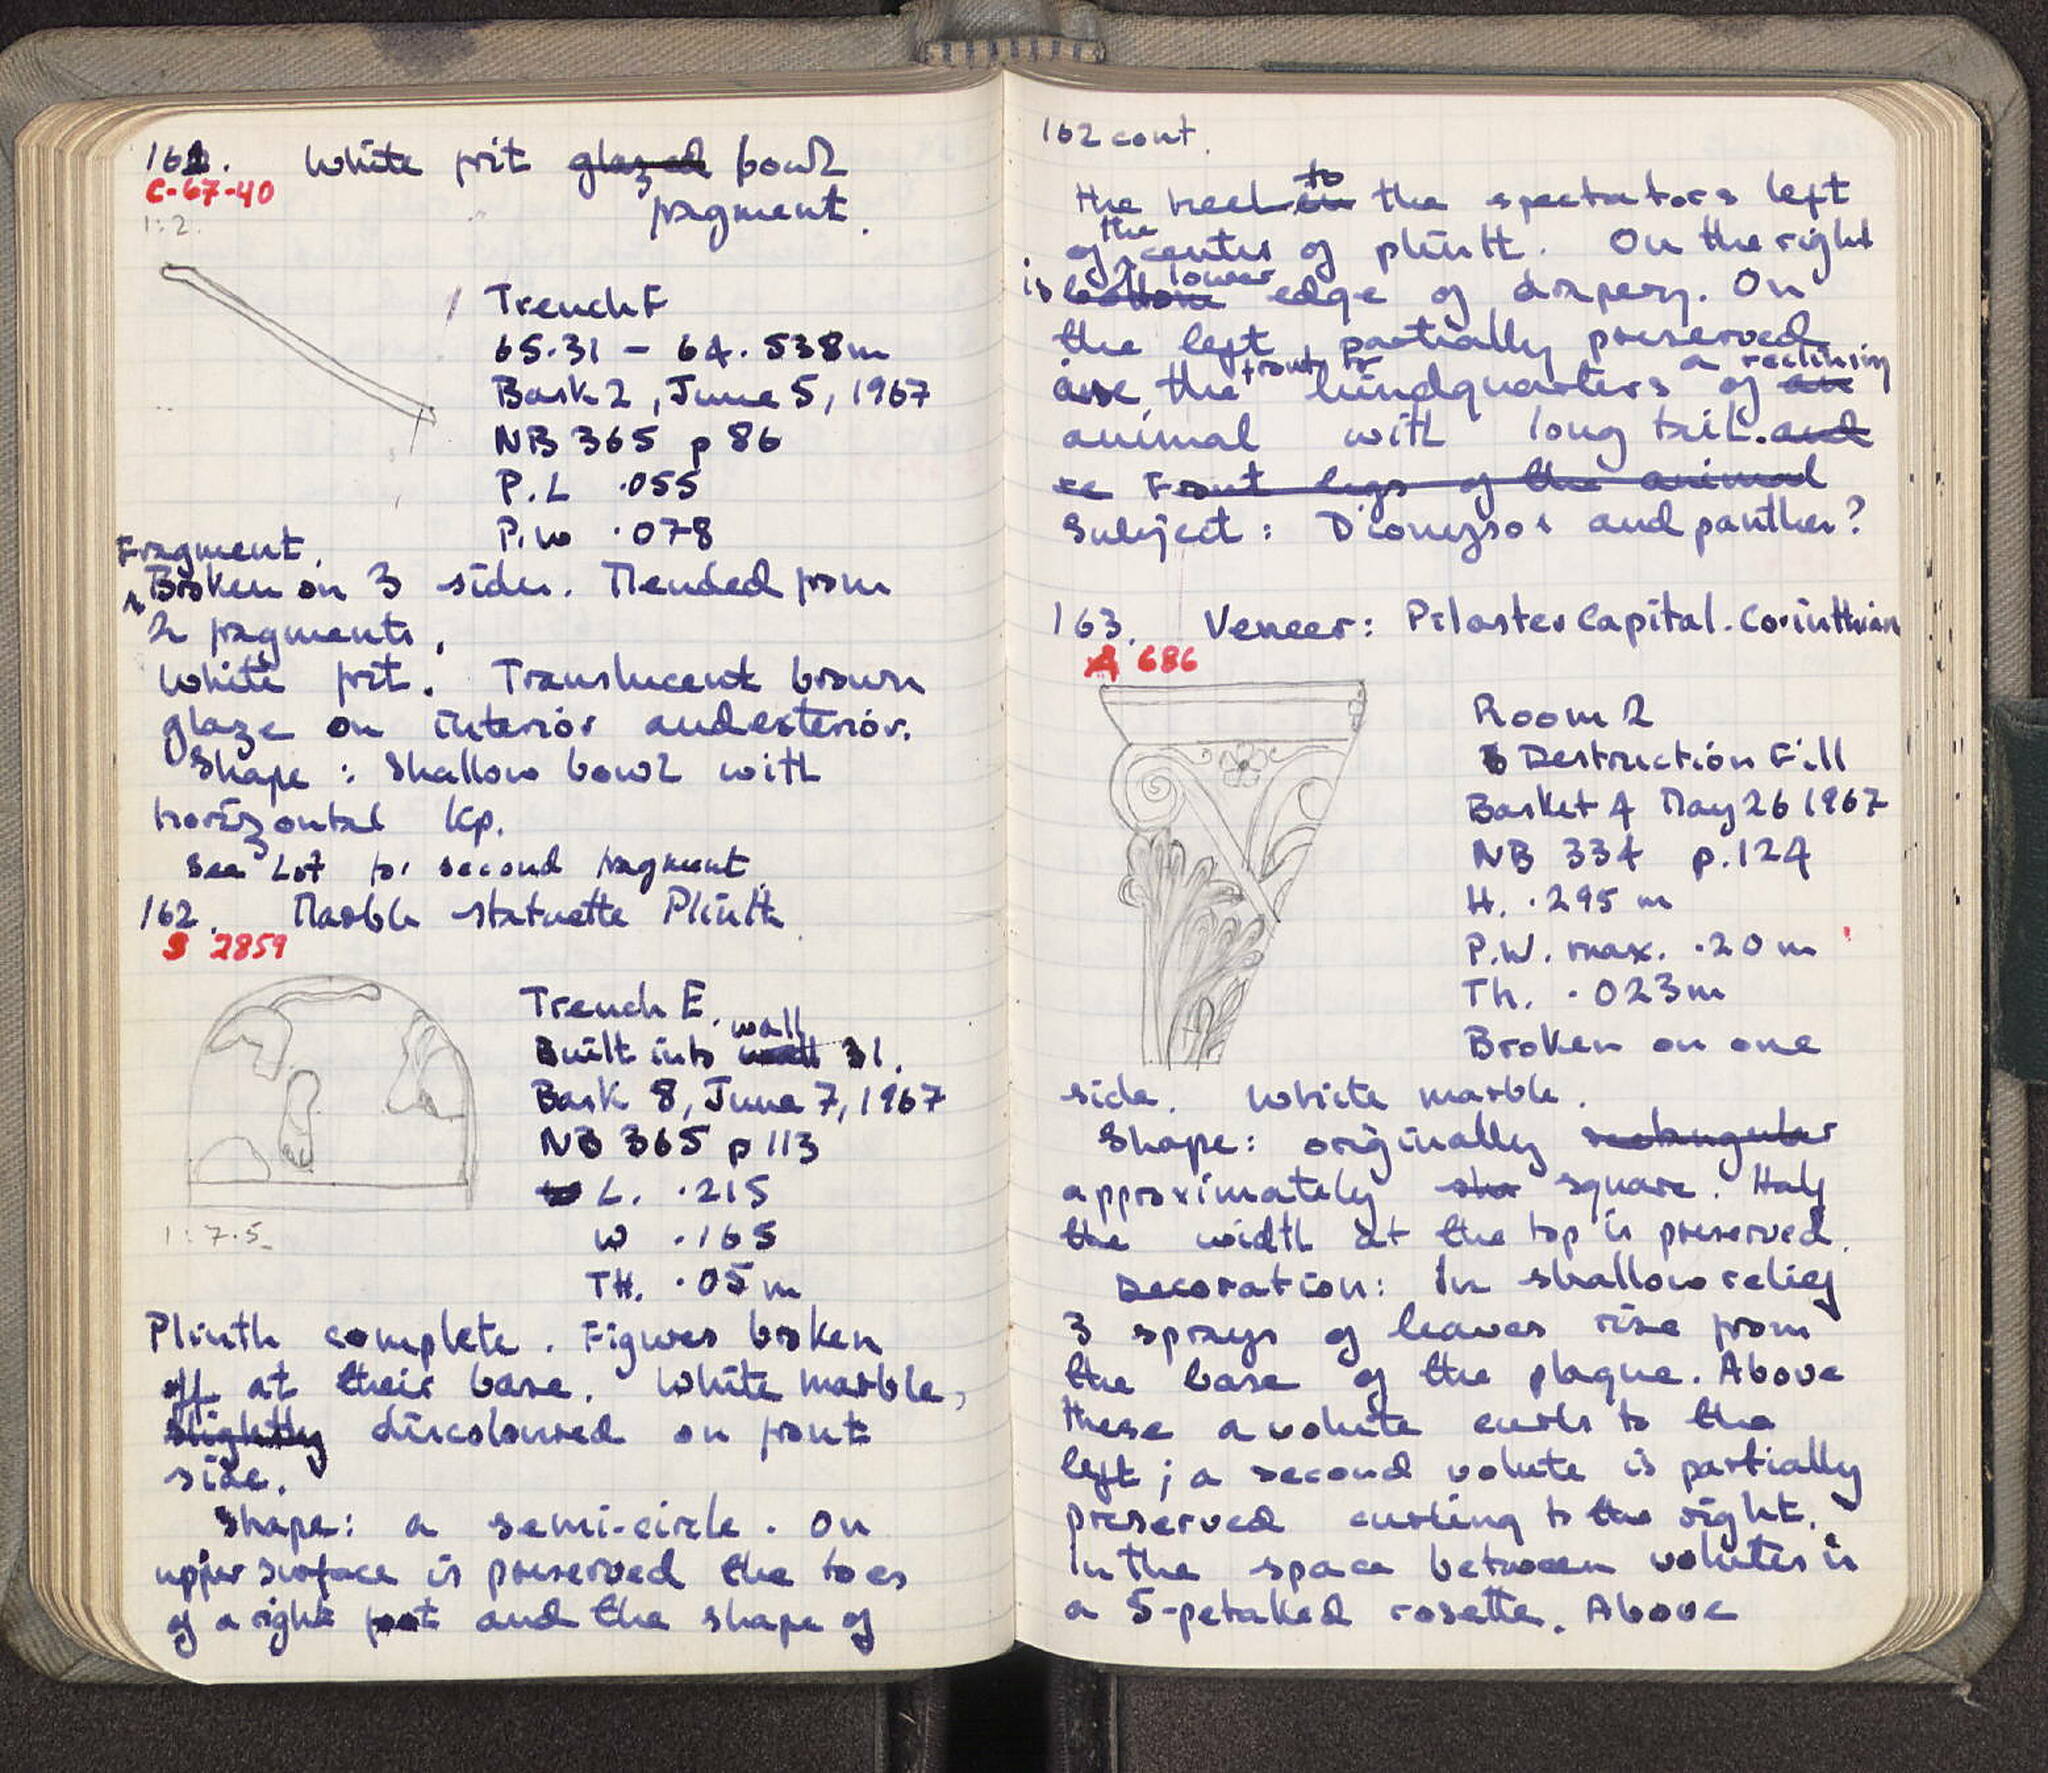 161. White frit glazed bowl
C-67-40
fragment.
1:2.
Trench F
65.31 - 64.538m
Bask 2, June 5, 1967
NB 365 p 86
P.L .055
P.W .078
Fragment.
Broken on 3 sides. Mended from
2 fragments.
White frit. Translucent brown
glaze on interior and exterior.
Shape: Shallow bowl with
horizontal lip.
See Lot for second fragment.
162. Marble statuette Plinth
S 2859
Trench E.
Built into wall 31.
Bask 8, June 7, 1967
NB 365 p 113
L. .215
W .165
TH. .05 m
1:7.5
Plinth complete. Figures broken
off at their base. White marble,
slightly discoloured on front
side.
Shape: a semi-circle. On
upper surface is preserved the toes
of a right foot and the shape of
162 cont.
the heel in to the spectators left
of the center of plinth. On the right
is bottom lower edge of drapery. On
the left, partially preserved
are, the front to hindquarters of an a reclining
animal with long tail. and
re Front legs of the animal
Subject: Dionysos and panther?
163. Veneer: Pilaster Capital. Corinthian
A 686
Room 2
Destruction Fill
Basket 4 May 26 1967
NB 334 p. 124
H. .295 m
P.W. max. .20 m
Th. .023m
Broken on one
side. White marble.
Shape: originally rectangular
approximately sha square. Half
the width at the top is preserved.
Decoration: In shallow relief
3 sprays of leaves rise from
the base of the plaque. Above
these a volute curls to the
left; a second volute is partially
preserved curling to the right.
In the space between volutes is
a 5-petaled rosette. Above